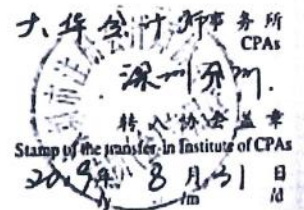 大华会计师事务所
CPAs
深圳分所
转入协会盖章
Stamp of the transfer-in Institute of CPAs
年 8 月 31 日
/y /m /d